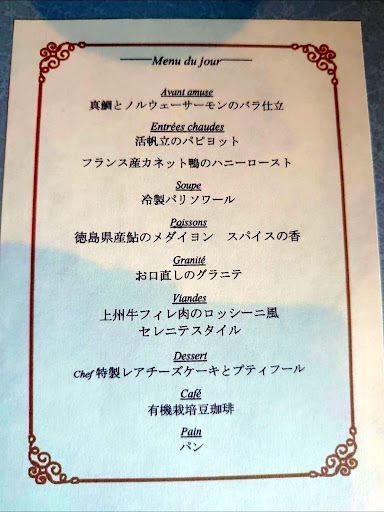 Menu du jour
Avant amuse
真鯛とノルウェーサーモンのバラ仕立
Entrées chaudes
活帆立のパピヨット
フランス産カネット鴨のハニーロースト
Soupe
冷製パリソワール
Poissons
徳島県産鮎のメダイヨン　スパイスの香
Granité
お口直しのグラニテ
Viandes
上州牛フィレ肉のロッシーニ風
セレニテスタイル
Dessert
Chef 特製レアチーズケーキとプティフール
Café
有機栽培豆珈琲
Pain
パン